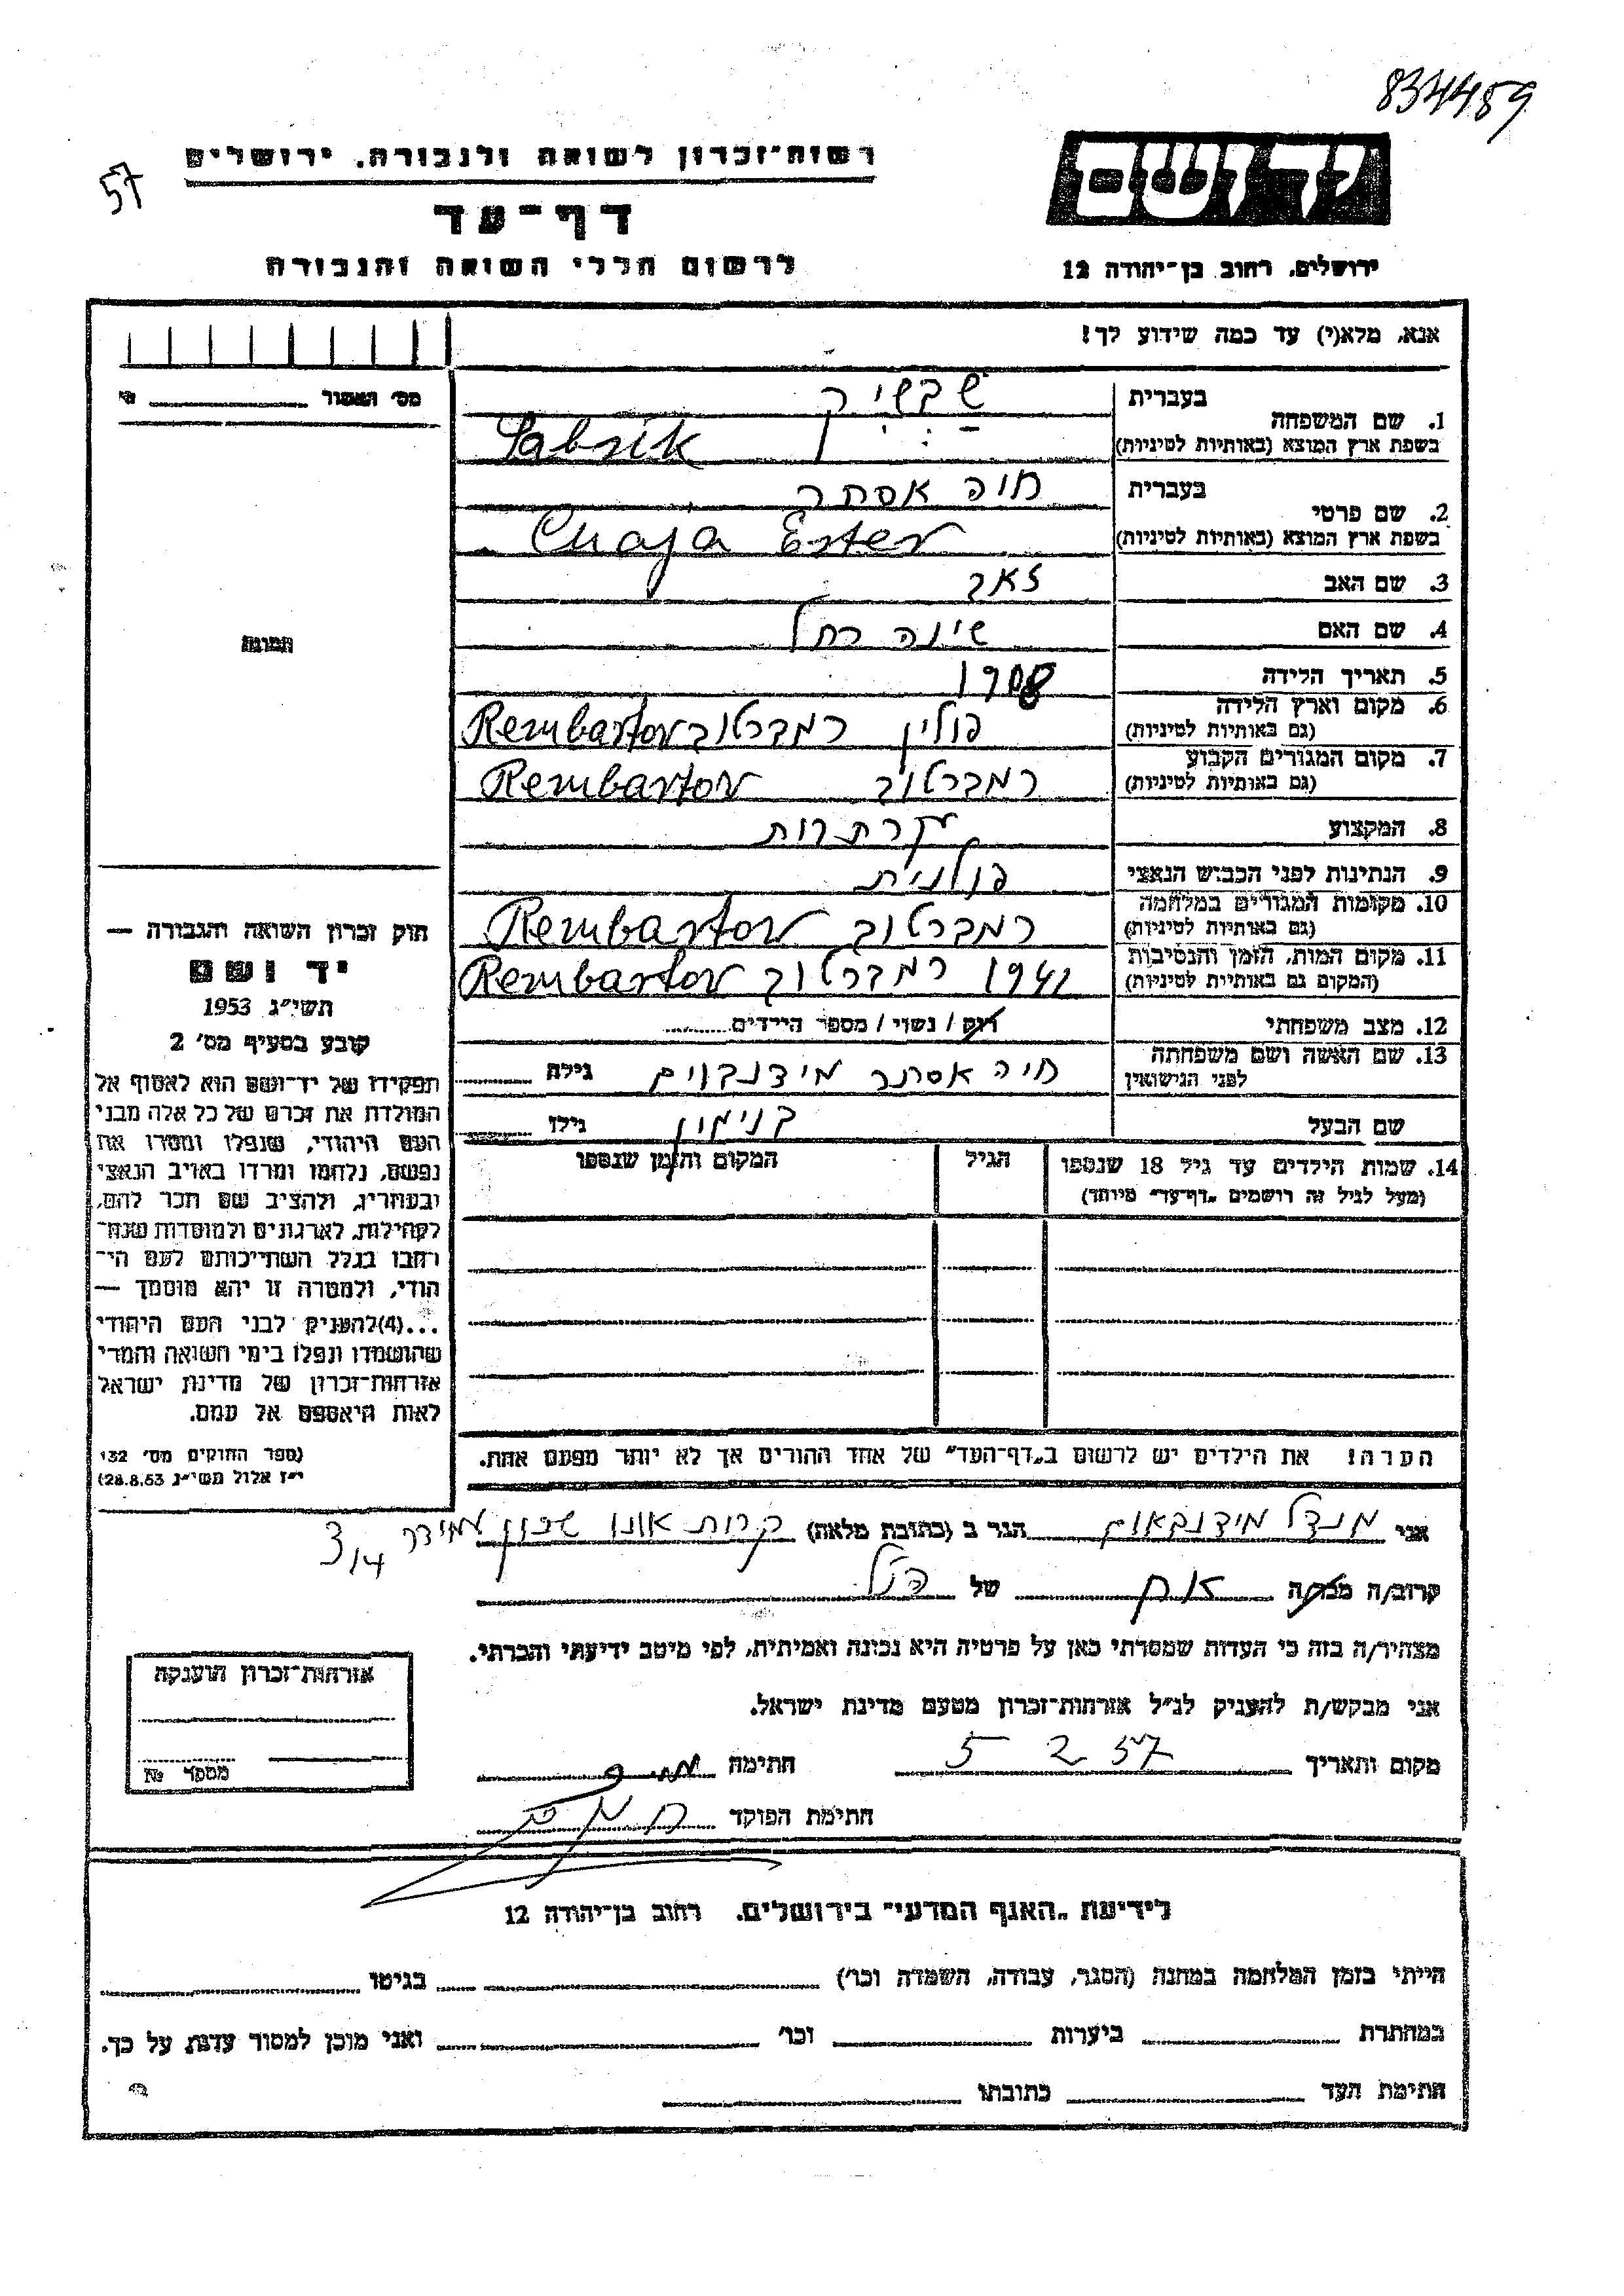 834459
57
יד ושם
ירושלים, רחוב בן־יהודה 12
רשות־זכרון לשואה ולגבורה, ירושלים
דף־עד
לרשום חללי השואה והגבורה
אנא, מלא(י) עד כמה שידוע לך!
מס׳ האשור
1. שם המשפחה בעברית שבשיק
בשפת ארץ המוצא (באותיות לטיניות) Sabsik
2. שם פרטי בעברית חיה אסתר
בשפת ארץ המוצא (באותיות לטיניות) Chaja Ester
3. שם האב זאב
4. שם האם שינה רחל
5. תאריך הלידה 1908
6. מקום וארץ הלידה (גם באותיות לטיניות) פולין רמברטוב Rembartov
7. מקום המגורים הקבוע (גם באותיות לטיניות) רמברטוב Rembartov
8. המקצוע
9. הנתינות לפני הכבוש הנאצי פולנית
10. מקומות המגורים במלחמה (גם באותיות לטיניות) רמברטוב Rembartov
11. מקום המות, הזמן והנסיבות (המקום גם באותיות לטיניות) 1942 רמברטוב Rembartov
12. מצב משפחתי רווק / נשוי / מספר הילדים
13. שם האשה ושם משפחתה לפני הנישואין חיה אסתר מידנבוים גילה
שם הבעל בנימין גילו
14. שמות הילדים עד גיל 18 שנספו הגיל המקום והזמן שנספו
(מעל לגיל זה רושמים „דף־עד״ מיוחד)
הערה! את הילדים יש לרשום ב„דף־העד״ של אחד ההורים אך לא יותר מפעם אחת.
תמונה
חוק זכרון השואה והגבורה —
יד ושם
תשי״ג 1953
קובע בסעיף מס׳ 2
תפקידו של יד־ושם הוא לאסוף אל
המולדת את זכרם של כל אלה מבני
העם היהודי, שנפלו ומסרו את
נפשם, נלחמו ומרדו באויב הנאצי
ובעוזריו, ולהציב שם וזכר להם,
לקהילות, לארגונים ולמוסדות שנח־
רבו בגלל השתייכותם לעם הי־
הודי, ולמטרה זו יהא מוסמך —
...(4) להעניק לבני העם היהודי
שהושמדו ונפלו בימי השואה והמרי
אזרחות־זכרון של מדינת ישראל
לאות היאספם אל עמם.
(ספר החוקים מס׳ 132
י״ז אלול תשי״ג 28.8.53)
אני מנדל מידנבאום הגר ב (כתובת מלאה) קרית אונו שכון 3/4
קרוב/ה מכר/ה אח של הנ״ל
מצהיר/ה בזה כי העדות שמסרתי כאן על פרטיה היא נכונה ואמיתית, לפי מיטב ידיעתי והכרתי.
אני מבקש/ת להעניק לנ״ל אזרחות־זכרון מטעם מדינת ישראל.
מקום ותאריך 5 2 57 חתימה
חתימת הפוקד
אזרחות־זכרון הוענקה
מספר №
לידיעת „האגף המדעי״ בירושלים, רחוב בן־יהודה 12
הייתי בזמן המלחמה במחנה (הסגר, עבודה, השמדה וכו׳) בגיטו
במחתרת ביערות וכו׳ ואני מוכן למסור עדות על כך.
חתימת העד כתובתו